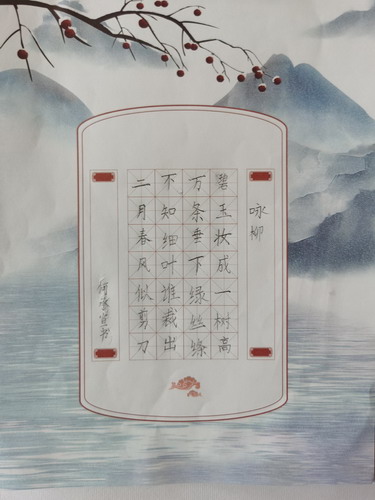 咏柳
碧玉妆成一树高
万条垂下绿丝绦
不知细叶谁裁出
二月春风似剪刀